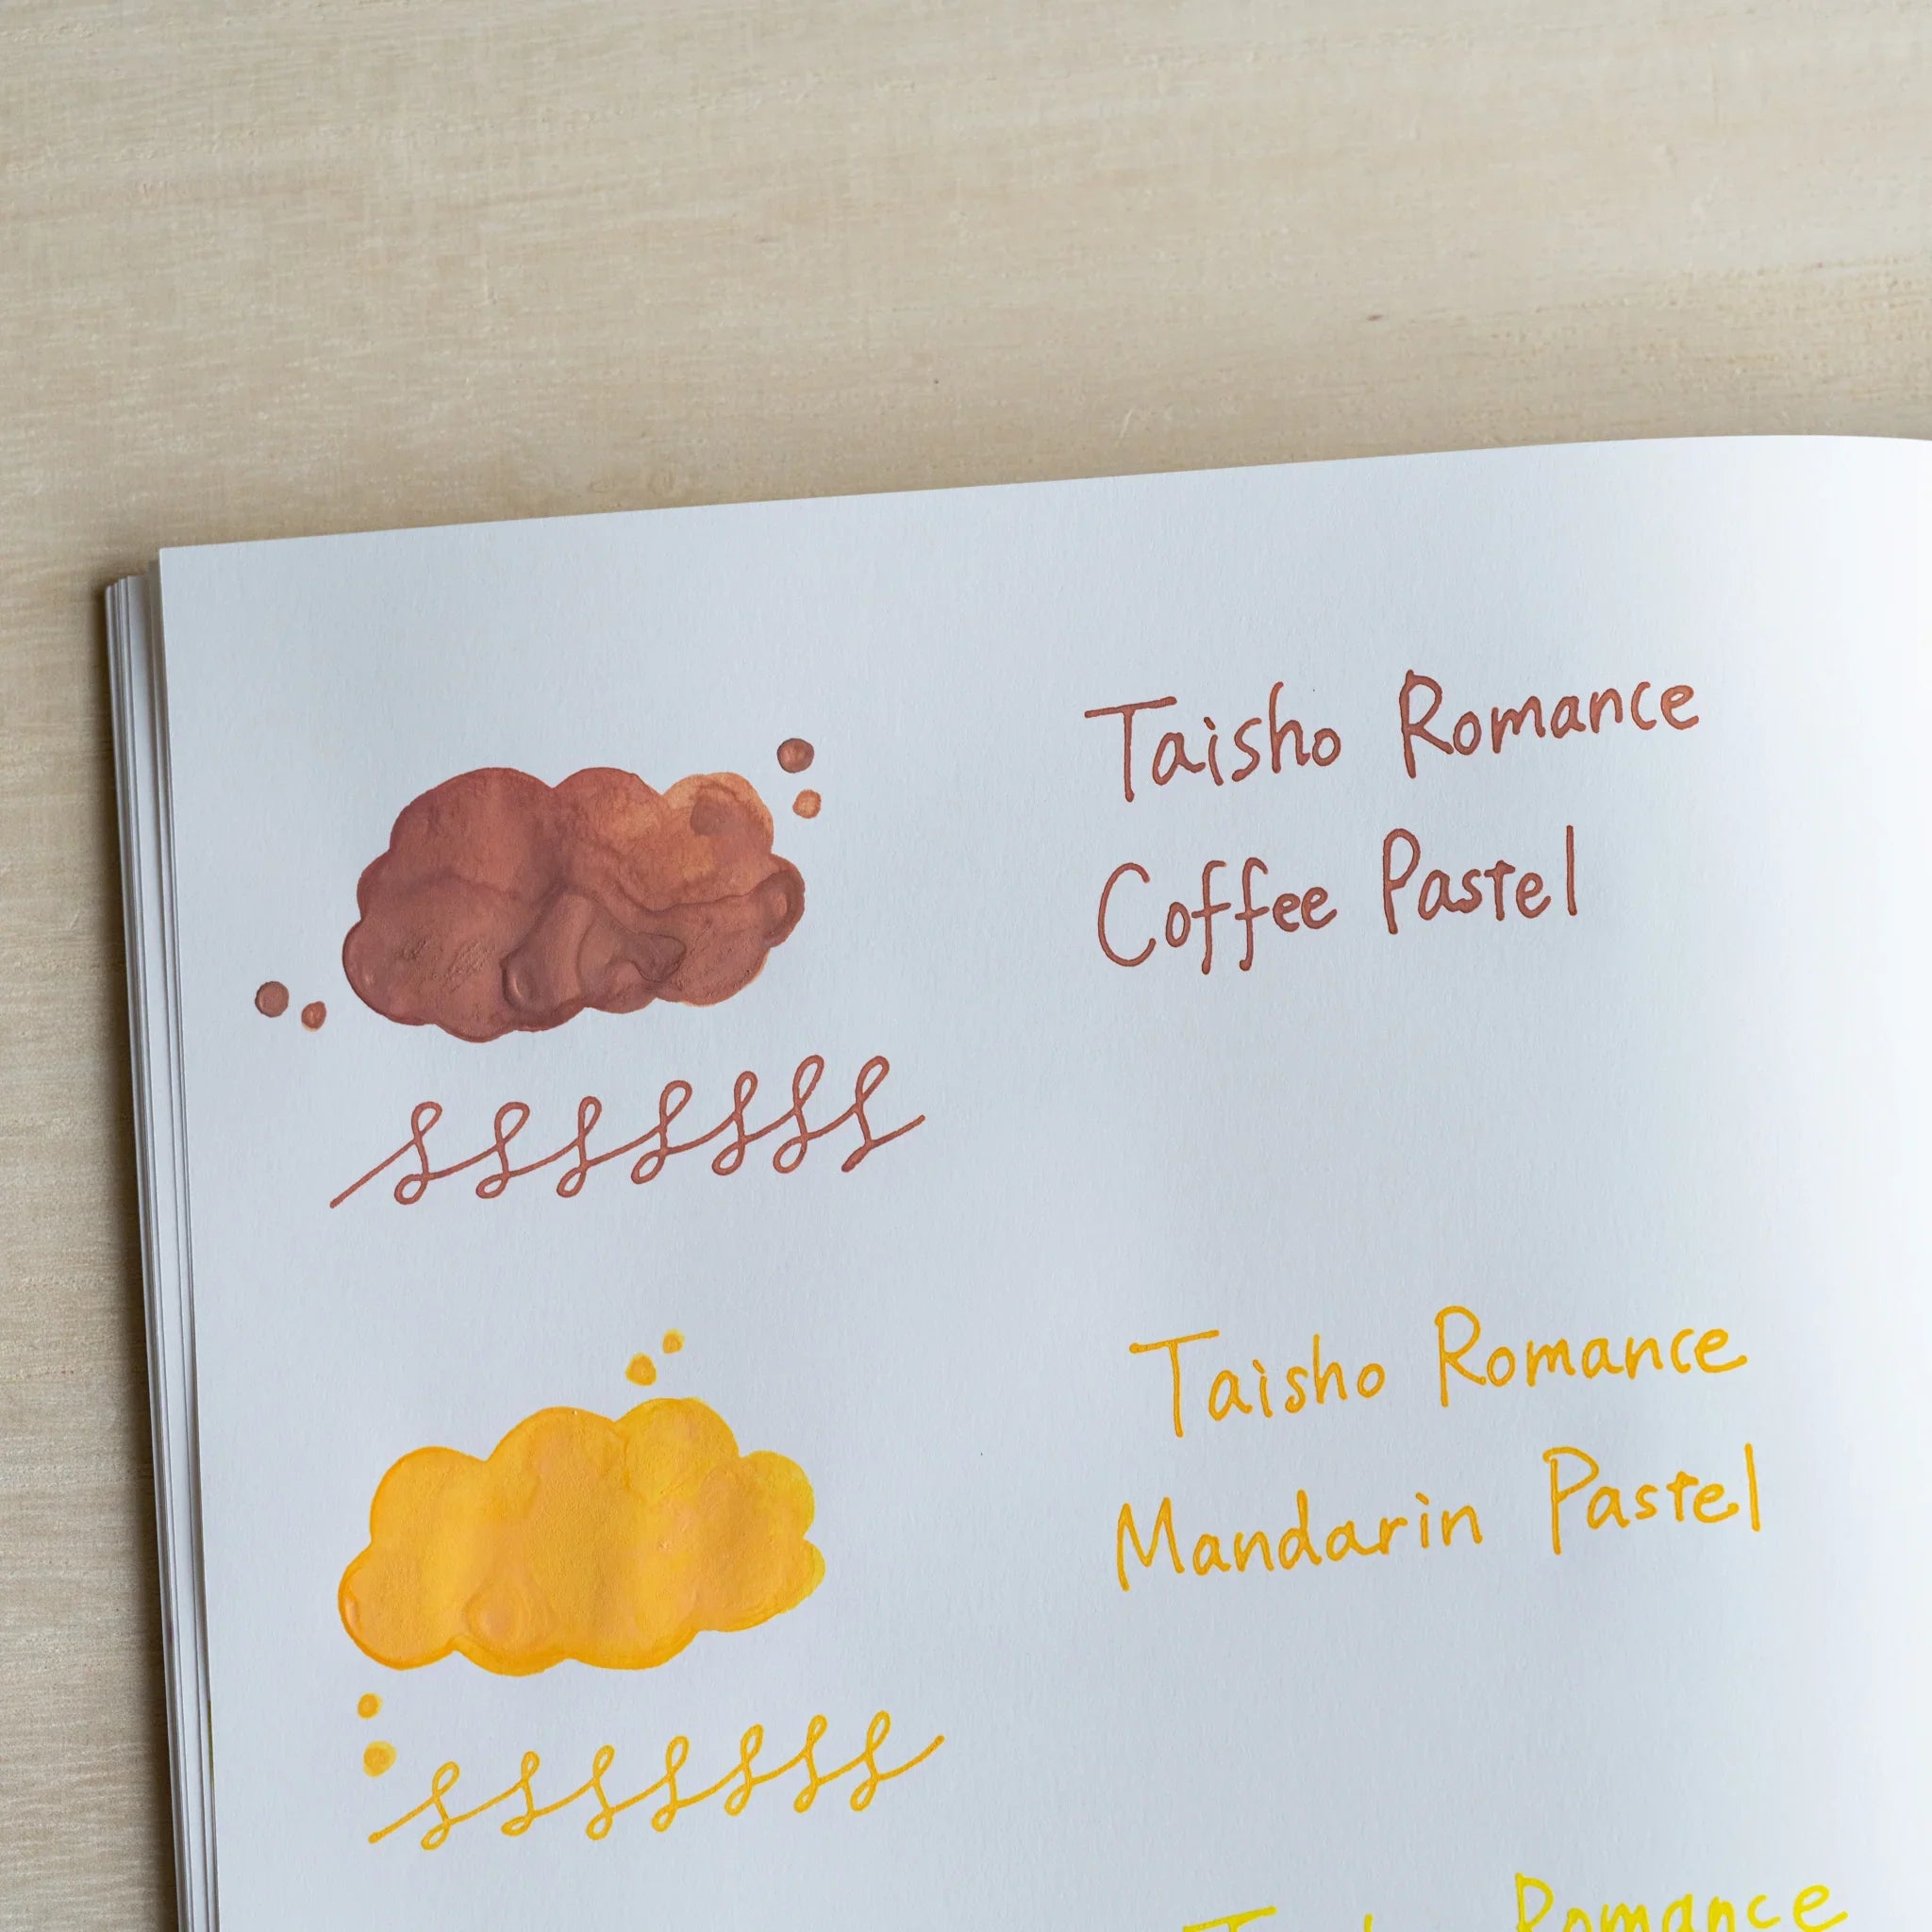 Taisho Romance
Coffee Pastel
Taisho Romance
Mandarin Pastel
Taisho Romance